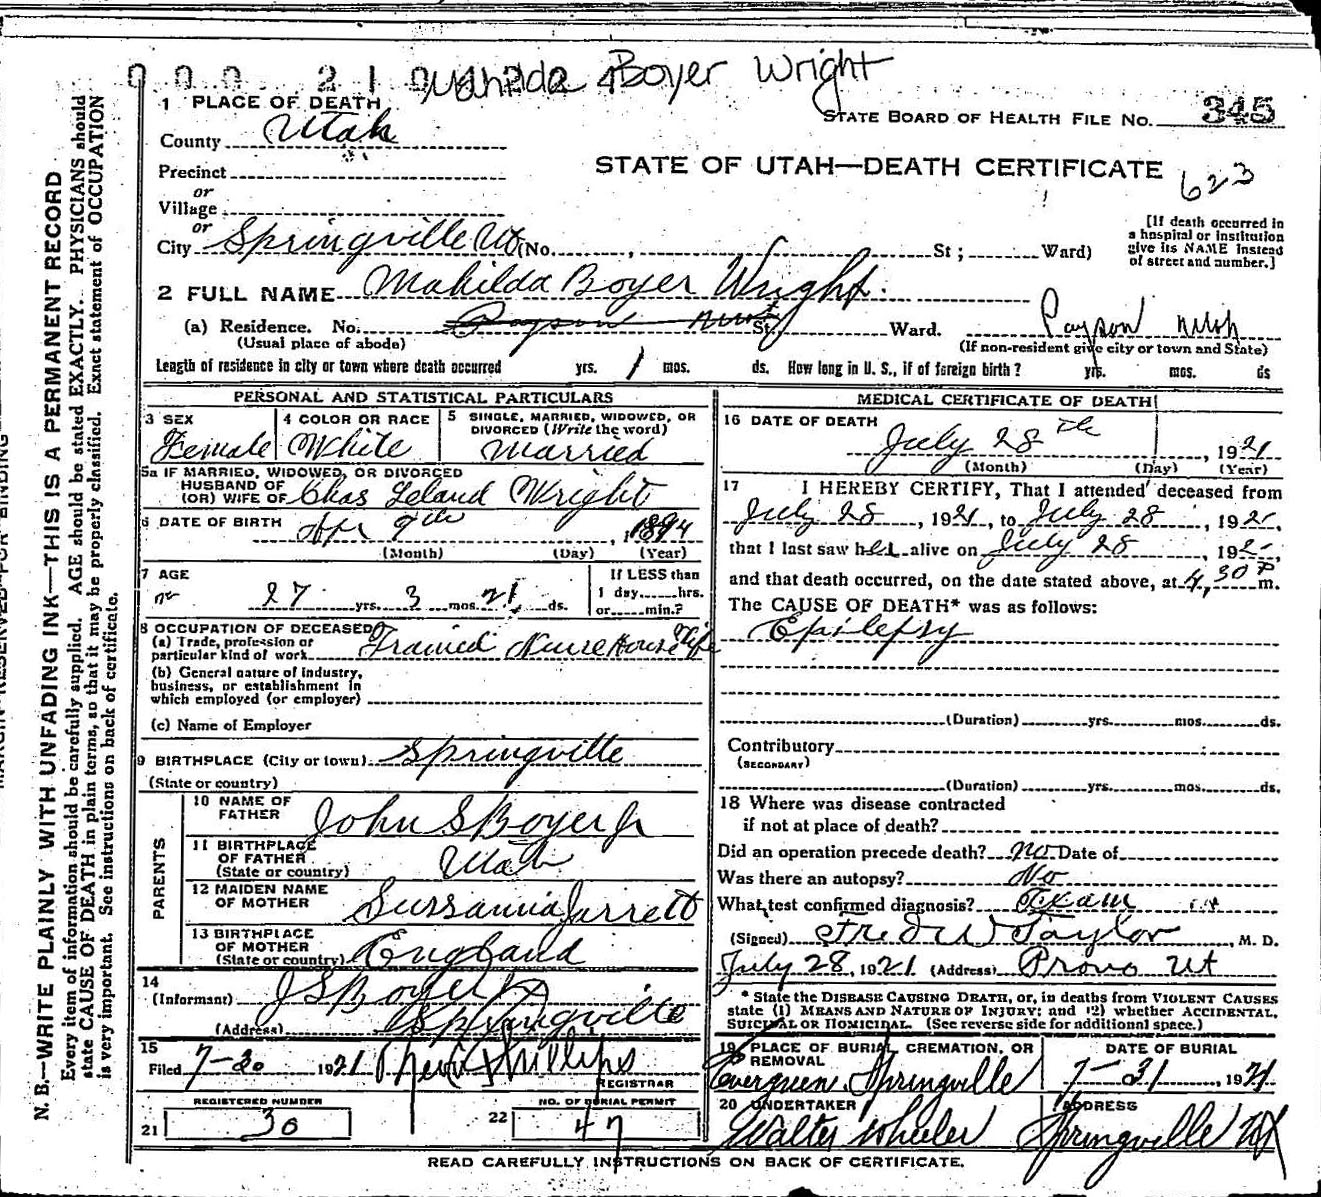 Mahilda Boyer Wright
1 PLACE OF DEATH
STATE BOARD OF HEALTH FILE NO. 345
County Utah
STATE OF UTAH—DEATH CERTIFICATE 623
Precinct
or
Village
or
City Springville Ut (No. , St ; Ward)
[If death occurred in a hospital or institution give its NAME instead of street and number.]
2 FULL NAME Mahilda Boyer Wright.
(a) Residence. No. Payson St, Ward. Payson Utah
(Usual place of abode) (If non-resident give city or town and State)
Length of residence in city or town where death occurred yrs. 1 mos. ds. How long in U. S., if of foreign birth? yrs. mos. ds
PERSONAL AND STATISTICAL PARTICULARS
3 SEX Female
4 COLOR OR RACE White
5 SINGLE, MARRIED, WIDOWED, OR DIVORCED (Write the word) Married
5a IF MARRIED, WIDOWED, OR DIVORCED
HUSBAND OF
(OR) WIFE OF Chas Leland Wright
6 DATE OF BIRTH Apr 9th , 1894
(Month) (Day) (Year)
7 AGE 27 yrs. 3 mos. 21 ds.
If LESS than
1 day hrs.
or min.?
8 OCCUPATION OF DECEASED
(a) Trade, profession or
particular kind of work Trained Nurse House Wife
(b) General nature of industry,
business, or establishment in
which employed (or employer)
(c) Name of Employer
9 BIRTHPLACE (City or town) Springville
(State or country)
PARENTS
10 NAME OF FATHER John S Boyer Jr
11 BIRTHPLACE OF FATHER (State or country) Utah
12 MAIDEN NAME OF MOTHER Sussanna Jarrett
13 BIRTHPLACE OF MOTHER (State or country) England
14
(Informant) J S Boyer Jr
(Address) Springville
15
Filed 7-30 1921 Phillips
REGISTRAR
REGISTERED NUMBER
21 30
NO. OF BURIAL PERMIT
22 47
MEDICAL CERTIFICATE OF DEATH
16 DATE OF DEATH
July 28th , 1921
(Month) (Day) (Year)
17 I HEREBY CERTIFY, That I attended deceased from
July 28 , 1921, to July 28 , 1921,
that I last saw her alive on July 28 , 192
and that death occurred, on the date stated above, at 4,30 P m.
The CAUSE OF DEATH* was as follows:
Epilepsy
(Duration) yrs. mos. ds.
Contributory
(SECONDARY)
(Duration) yrs. mos. ds.
18 Where was disease contracted
if not at place of death?
Did an operation precede death? No Date of
Was there an autopsy? No
What test confirmed diagnosis? Exam
(Signed) Fred W Taylor , M. D.
July 28, 1921 (Address) Provo Ut
* State the DISEASE CAUSING DEATH, or, in deaths from VIOLENT CAUSES
state (1) MEANS AND NATURE OF INJURY; and (2) whether ACCIDENTAL,
SUICIDAL OR HOMICIDAL. (See reverse side for additional space.)
19 PLACE OF BURIAL, CREMATION, OR REMOVAL
Evergreen Springville
DATE OF BURIAL
7-31 , 1921
20 UNDERTAKER
Walter Wheeler
ADDRESS
Springville Ut
READ CAREFULLY INSTRUCTIONS ON BACK OF CERTIFICATE.
N. B.—WRITE PLAINLY WITH UNFADING INK—THIS IS A PERMANENT RECORD
Every item of information should be carefully supplied. AGE should be stated EXACTLY. PHYSICIANS should
state CAUSE OF DEATH in plain terms, so that it may be properly classified. Exact statement of OCCUPATION
is very important. See instructions on back of certificate.